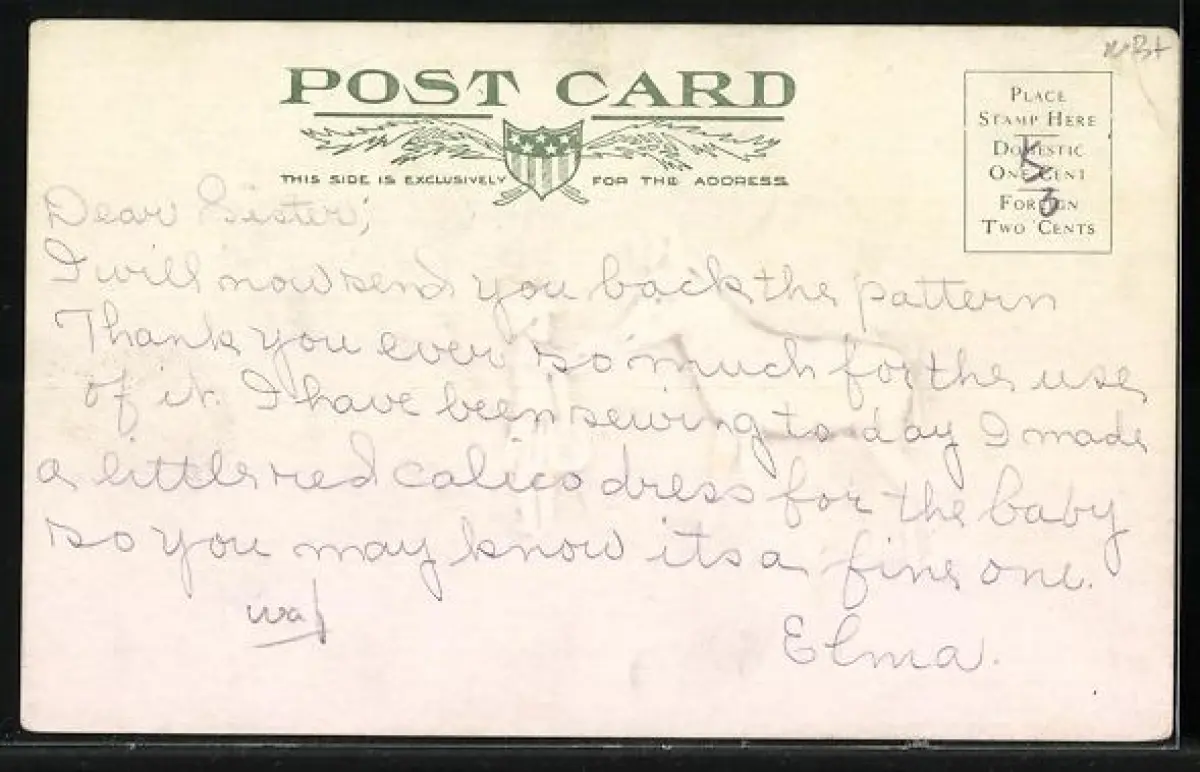 POST CARD
THIS SIDE IS EXCLUSIVELY FOR THE ADDRESS
PLACE
STAMP HERE
DOMESTIC
ONE CENT
FOREIGN
TWO CENTS
Dear Sister;
I will now send you back the pattern
Thank you ever so much for the use
of it. I have been sewing to day I made
a little red calico dress for the baby
so you may know its a fine one.
Elma.